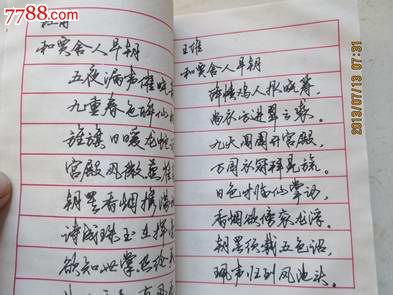 7788.com
中国收藏热线
和贾舍人早朝
五夜漏声催晓
九重春色醉仙
旌旗日暖龙蛇
宫殿风微燕雀
朝罢香烟携满
诗成珠玉在挥
欲知世掌丝纶
王维
和贾舍人早朝
绛帻鸡人报晓筹，
尚衣方进翠云裘。
九天阊阖开宫殿，
万国衣冠拜冕旒。
日色才临仙掌动，
香烟欲傍衮龙浮。
朝罢须裁五色诏，
佩声归到凤池头。
2013/07/13 07:31